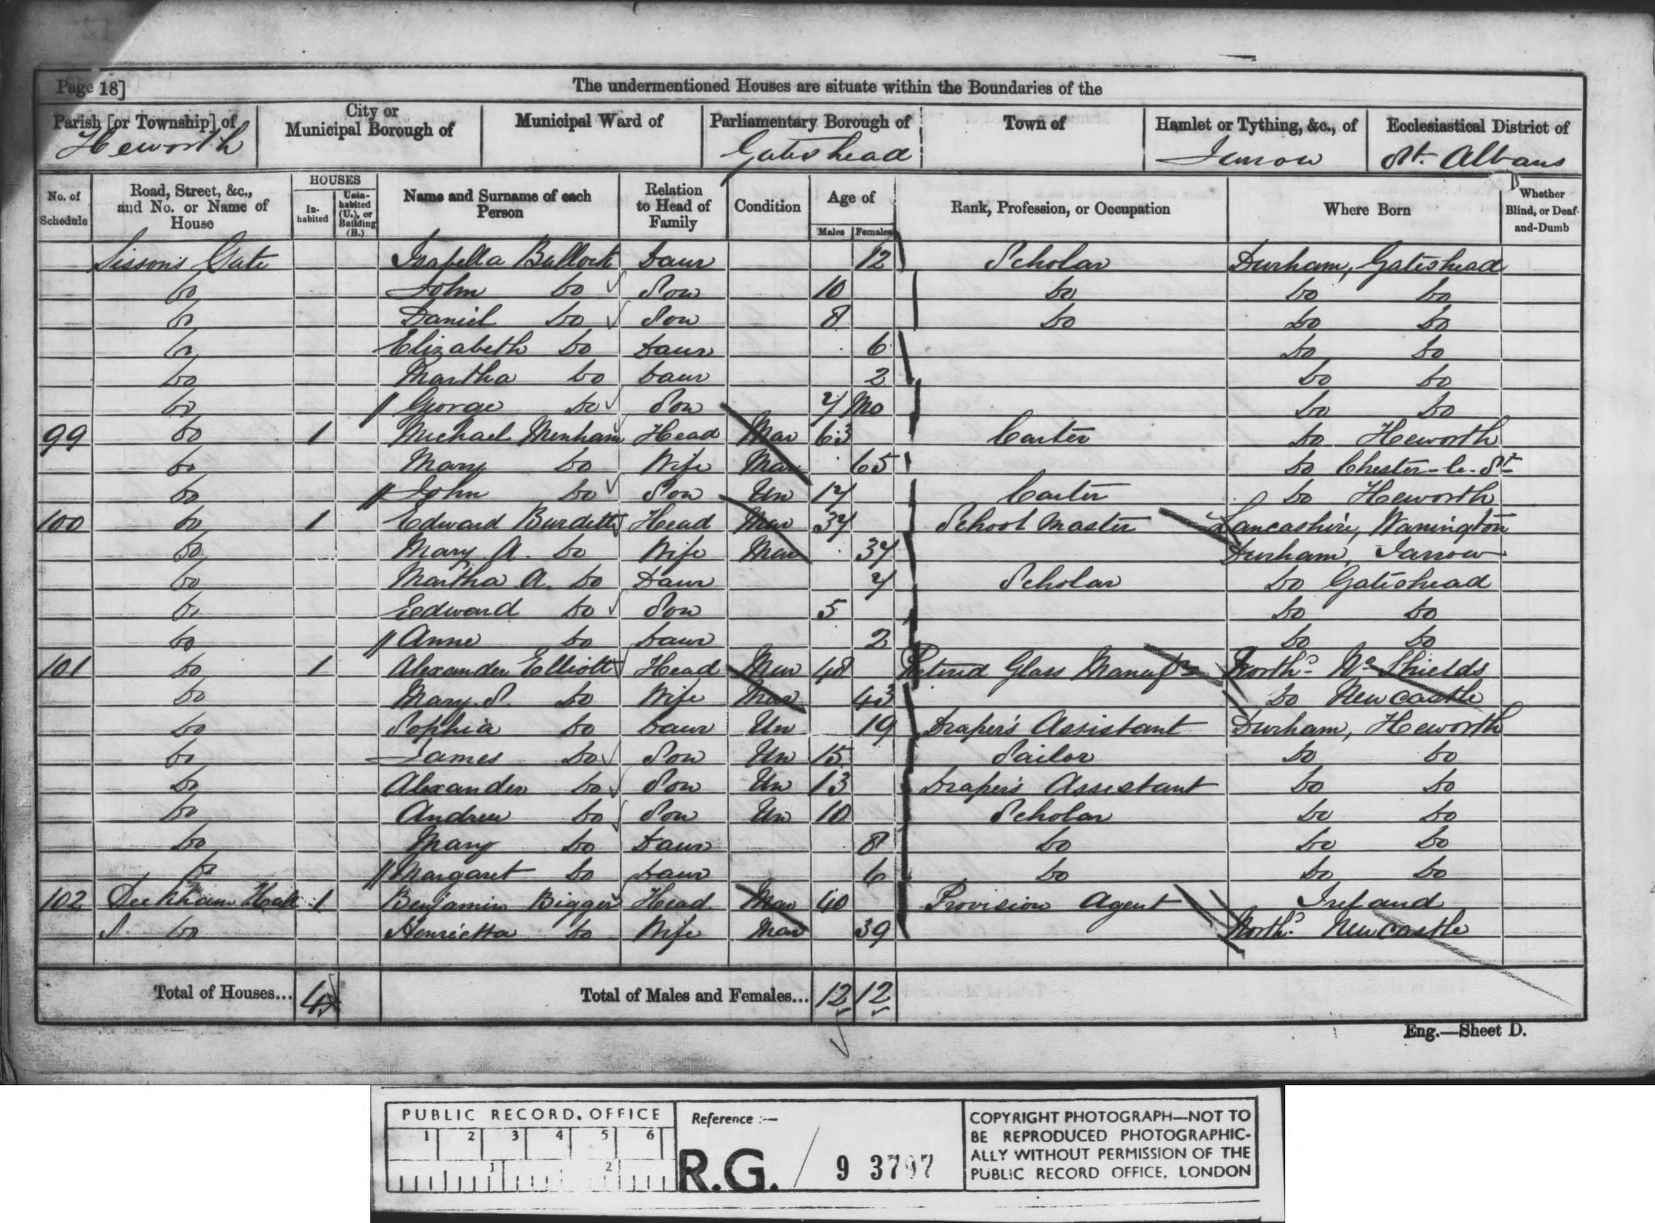 Page 18]
The undermentioned Houses are situate within the Boundaries of the
Parish [or Township] of Heworth
City or Municipal Borough of
Municipal Ward of
Parliamentary Borough of Gateshead
Town of
Hamlet or Tything, &c., of Jarrow
Ecclesiastical District of St. Albans
No. of Schedule
Road, Street, &c., and No. or Name of House
HOUSES
In-habited
Unin-habited (U.), or Building (B.)
Name and Surname of each Person
Relation to Head of Family
Condition
Age of
Males Females
Rank, Profession, or Occupation
Where Born
Whether Blind, or Deaf-and-Dumb
Sisson's Gate Isabella Bullock Daur 12 Scholar Durham, Gateshead
Do John Do Son 10 Do Do Do
Do Daniel Do Son 8 Do Do Do
Do Elizabeth Do Daur 6 Do Do
Do Martha Do Daur 2 Do Do
Do George Do Son 7 Mo Do Do
99 Do 1 Michael Menham Head Mar 63 Carter Do Heworth
Do Mary Do Wife Mar 65 Do Chester-le-St
Do John Do Son Un 17 Carter Do Heworth
100 Do 1 Edward Burdett Head Mar 37 School Master Lancashire, Warrington
Do Mary A. Do Wife Mar 37 Durham, Jarrow
Do Martha A. Do Daur 7 Scholar Do Gateshead
Do Eedward Do Son 5 Do Do
Do Anne Do Daur 2 Do Do
101 Do 1 Alexander Elliott Head Mar 48 Retired Glass Manufr North'd No Shields
Do Mary S. Do Wife Mar 43 Do Newcastle
Do Sophia Do Daur Un 19 Draper's Assistant Durham, Heworth
Do James Do Son Un 15 Sailor Do Do
Do Alexander Do Son Un 13 Draper's Assistant Do Do
Do Andrew Do Son Un 10 Scholar Do Do
Do Mary Do Daur 8 Do Do Do
Do Margaret Do Daur 6 Do Do Do
102 Deckham Hall 1 Benjamin Bigger Head Mar 40 Provision Agent Ireland
S. Do Henrietta Do Wife Mar 39 North'd Newcastle
Total of Houses... 4
Total of Males and Females... 12 12
Eng.—Sheet D.
PUBLIC RECORD OFFICE
1 2 3 4 5 6
1 2
Reference :—
R.G. / 9 3797
COPYRIGHT PHOTOGRAPH—NOT TO
BE REPRODUCED PHOTOGRAPHIC-
ALLY WITHOUT PERMISSION OF THE
PUBLIC RECORD OFFICE, LONDON